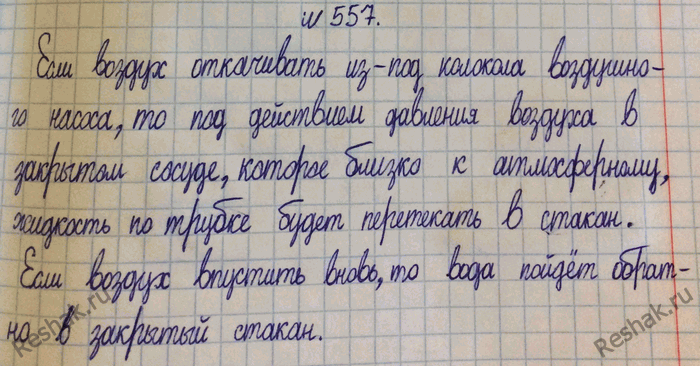 № 557.
Если воздух откачивать из-под колокола воздушно-
го насоса, то под действием давления воздуха в
закрытом сосуде, которое близко к атмосферному,
жидкость по трубке будет перетекать в стакан.
Если воздух впустить вновь, то вода пойдёт обрат-
но в закрытый стакан.
Reshak.ru
Reshak.ru